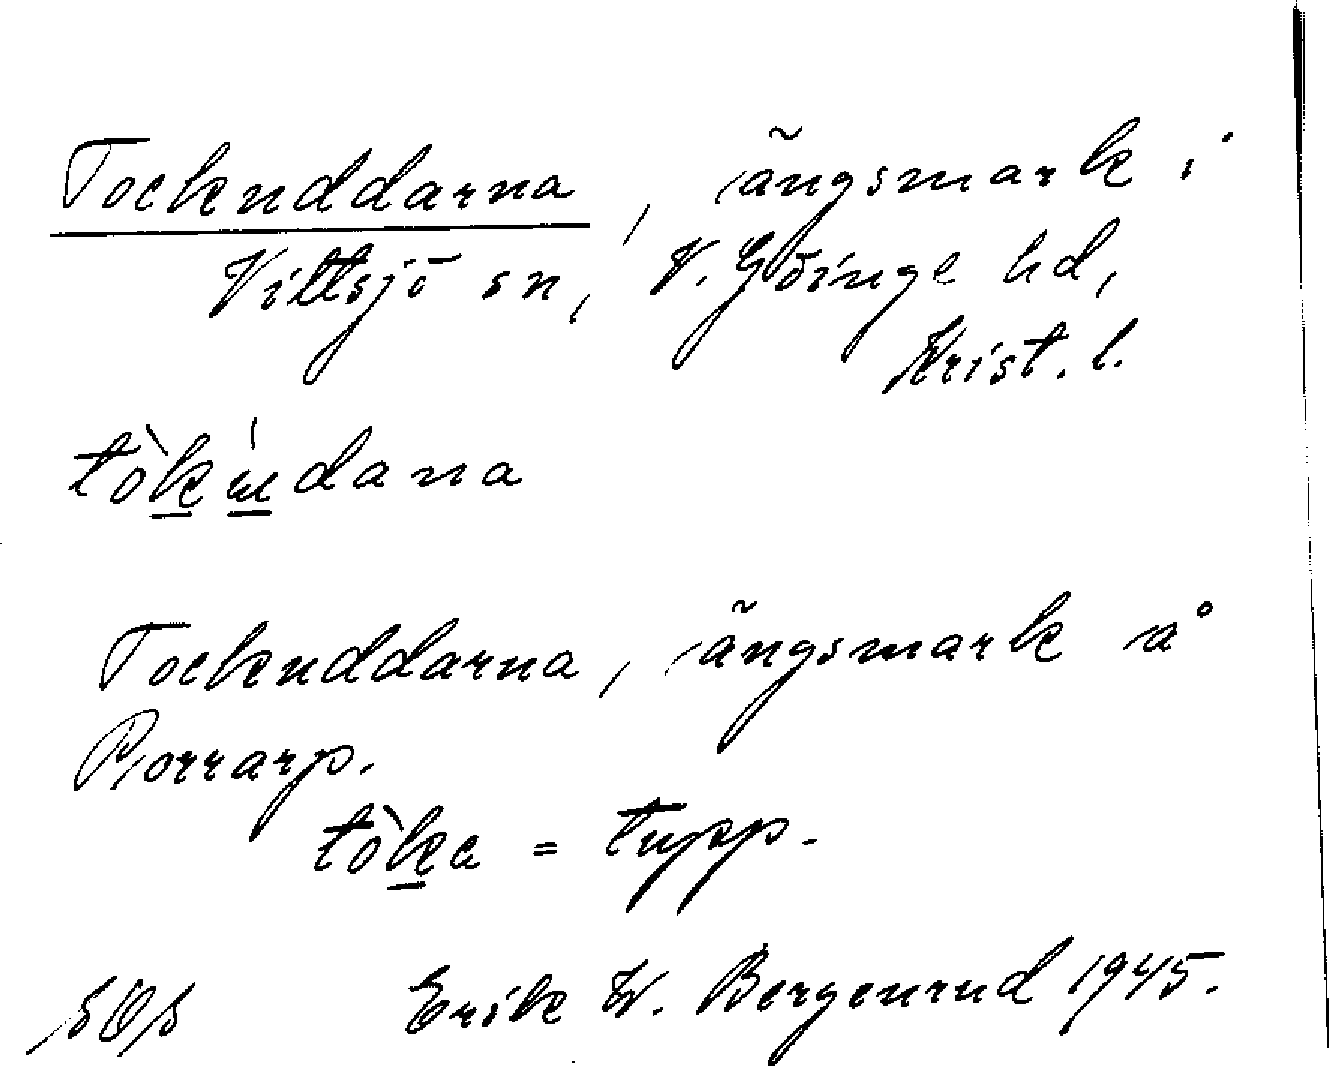 Tockuddarna, ängsmark i
Vittsjö sn, V. Göinge hd,
Krist. l.
tòkúdana
Tockuddarna, ängsmark å
Porrarp.
tòka = tupp.
Erik W. Bergenrud 1945.